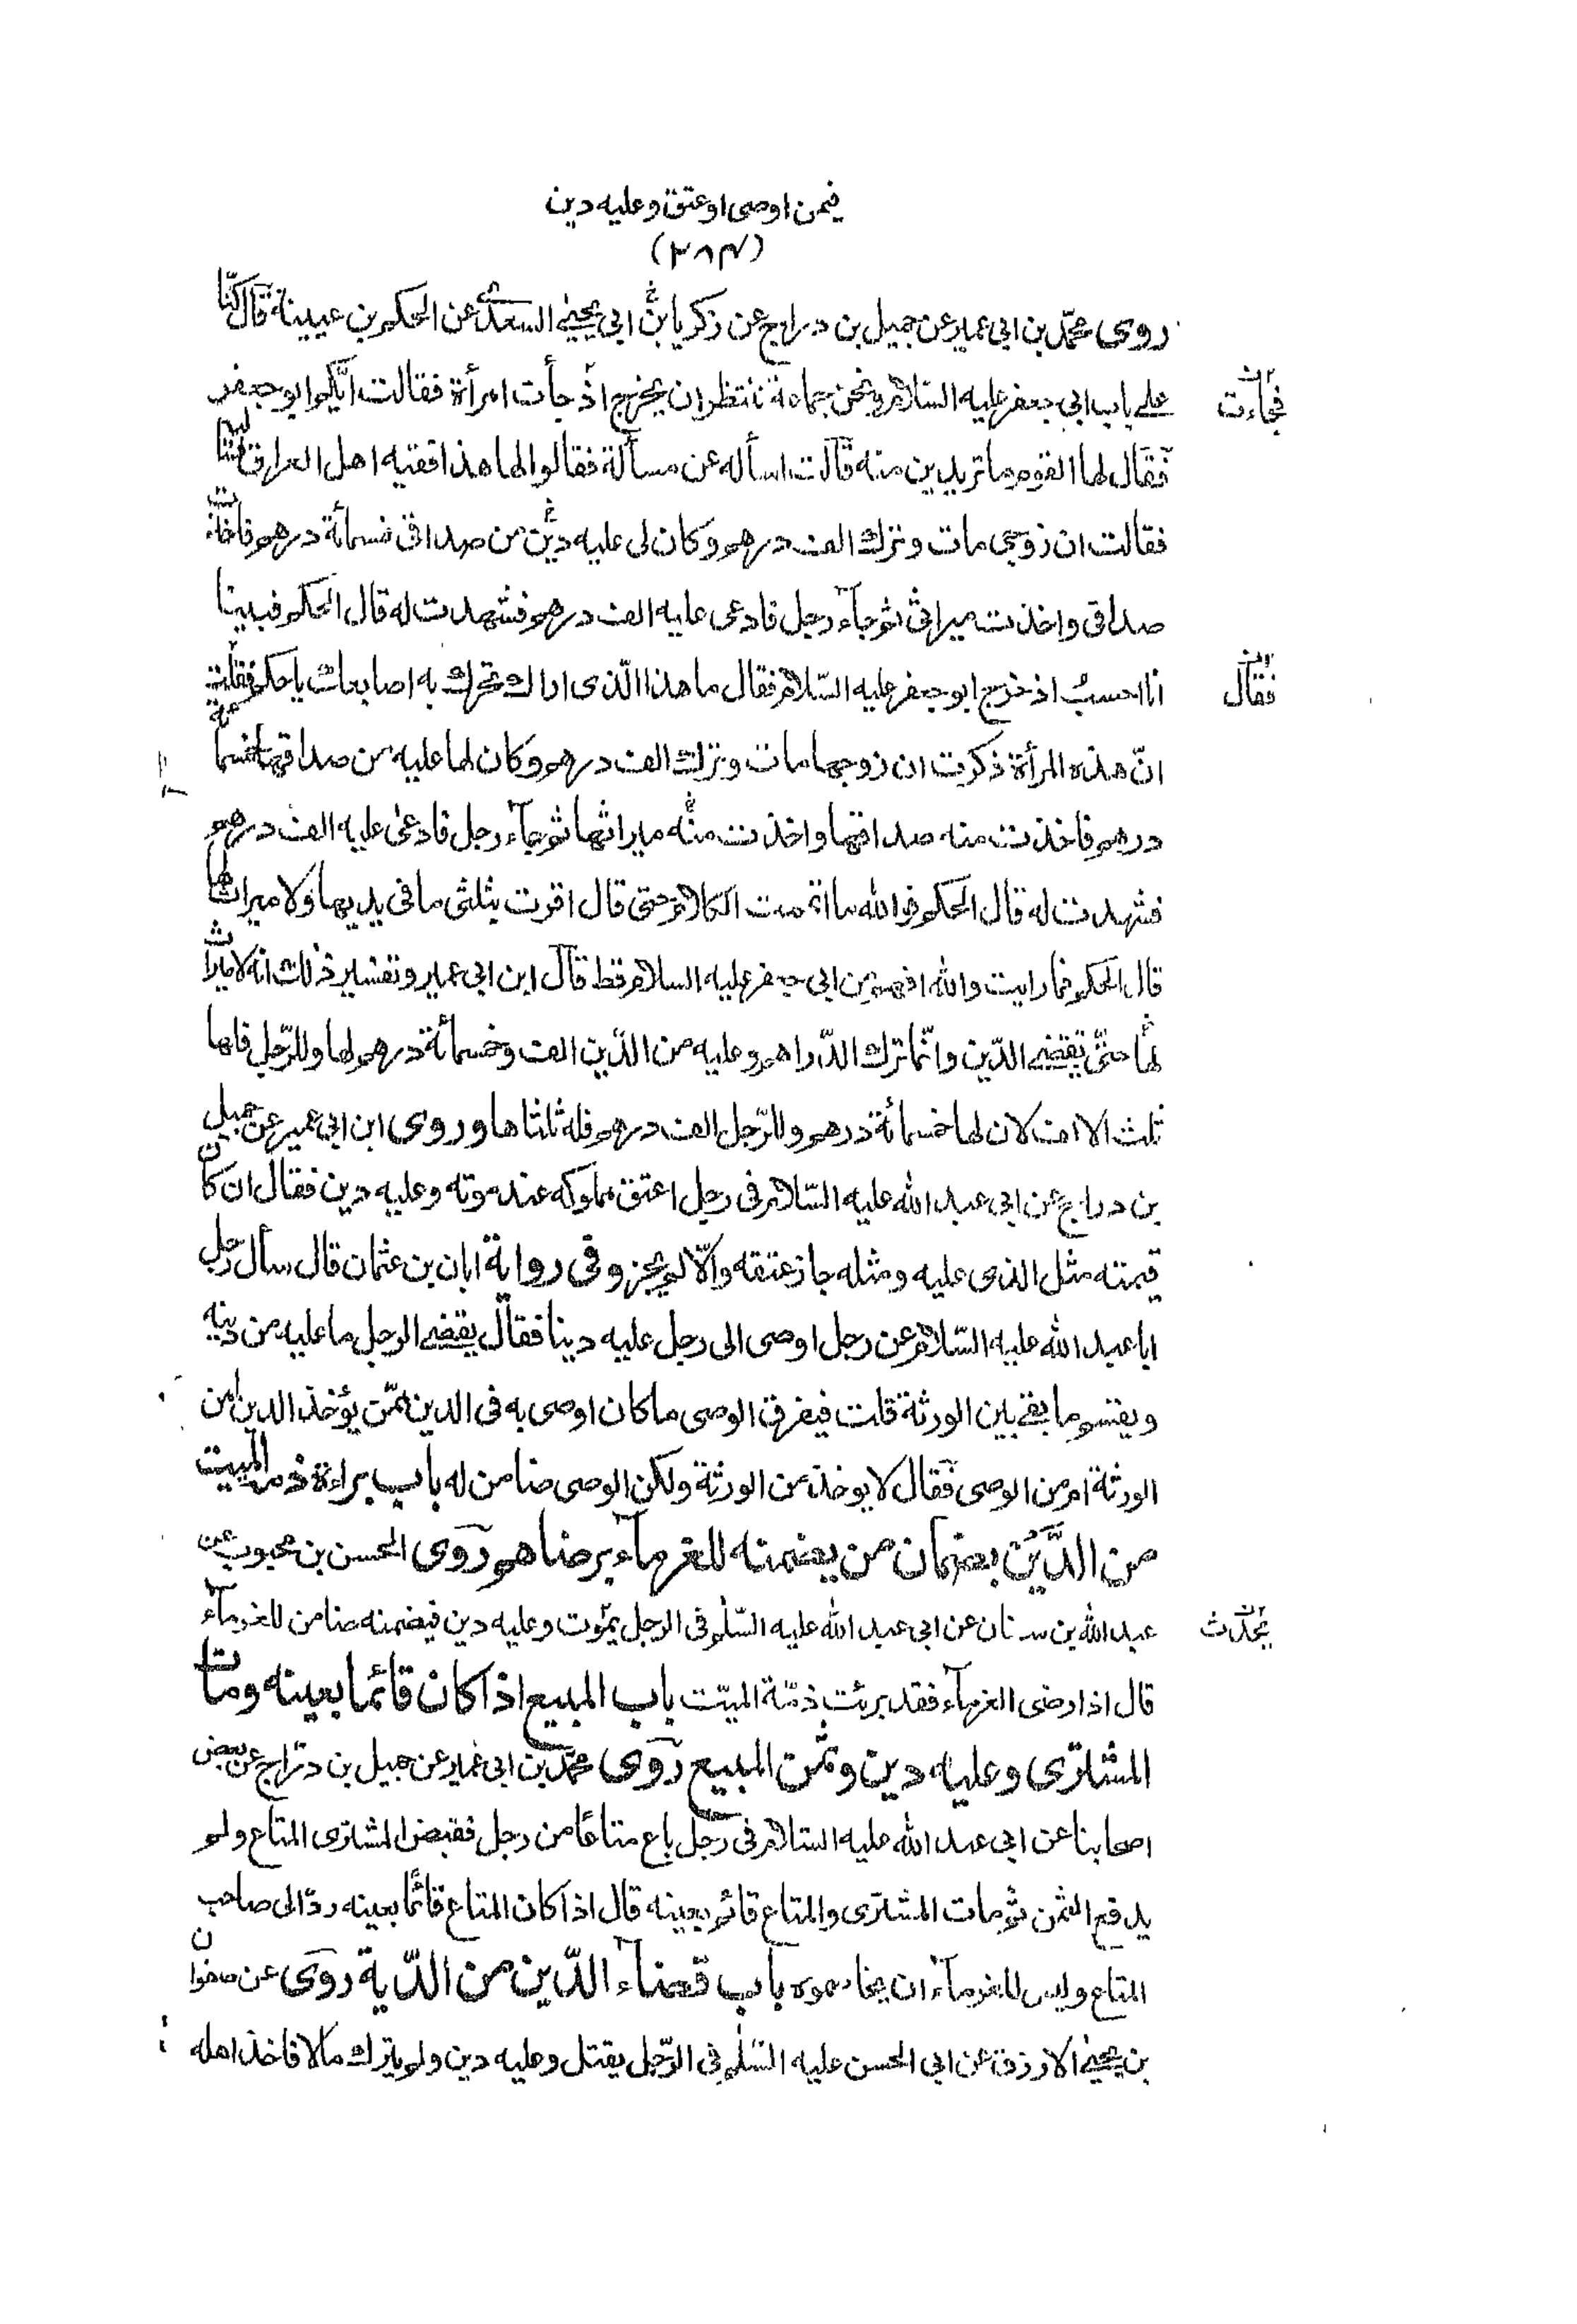 فيمن اوصى او عتق وعليه دين
(٣٨٤)
روى محمّد بن ابى عمير عن جميل بن دراج عن زكريا بن ابى يحيى السعدى عن الحكم بن عيينة قال كنّا
على باب ابى جعفر عليه السّلام ونحن جماعة ننتظر ان يخرج اذ جأت امرأة فقالت ايّكم ابو جعفر
فجاءت
فقال لها القوم ما تريدين منه قالت اسأله عن مسألة فقالوا لها هذا فقيه اهل العراق
فقالت ان زوجى مات وترك الف درهم وكان لى عليه دين من صداقى خمسمائة درهم فاخذت
صداقى واخذت ميراثى ثم جآء رجل فادعى عليه الف درهم فشهدت له قال الحكم فبينا
انا احسب اذ خرج ابو جعفر عليه السّلام فقال ما هذا الّذى اراك تحرك به اصابعك يا حكم فقلت
فقال
انّ هذه المرأة ذكرت ان زوجها مات وترك الف درهم وكان لها عليه من صداقها خمسمائة
درهم فاخذت منه صداقها واخذت منه ميراثها ثم جآء رجل فادعى عليه الف درهم
فشهدت له قال الحكم فوالله ما اتممت الكلام حتى قال اقرت بثلثى ما فى يديها ولا ميراث لها
قال الحكم فما رايت والله افهم من ابى جعفر عليه السلام قط قال ابن ابى عمير وتفسير ذلك انه لا ميراث
لها حتى تقضى الدّين وانّما ترك الف درهم وعليه من الدّين الف وخمسمائة درهم لها وللرّجل فلها
ثلث الالف لان لها خمسمائة درهم وللرّجل الف درهم فله ثلثاها وروى ابن ابى عمير عن جميل
بن دراج عن ابى عبد الله عليه السّلام فى رجل اعتق مملوكه عند موته وعليه دين فقال ان كان
قيمته مثل الذى عليه ومثله جاز عتقه والّا لم يجز وفى رواية ابان بن عثمان قال سأل رجل
ابا عبد الله عليه السّلام عن رجل اوصى الى رجل عليه دينا فقال يقضى الرجل ما عليه من دينه
ويقسم ما بقى بين الورثة قلت فيفرق الوصى ما كان اوصى به فى الدين ممّن يؤخذ الدين امن
الورثة ام من الوصى فقال لا يوخذ من الورثة ولكن الوصى ضامن له باب براءة ذمة الميت
من الدَّيْن بضمان من يضمنه للغرمآء برضاهم روى الحسن بن محبوب عن
عبد الله بن سنان عن ابى عبد الله عليه السّلم فى الرجل يموت وعليه دين فيضمنه ضامن للغرمآء
قال اذا رضى الغرمآء فقد برئت ذمّة الميّت باب المبيع اذا كان قائما بعينه ومات
المشترى وعليه دين وثمن المبيع روى محمّد بن ابى عمير عن جميل بن درّاج عن بعض
اصحابنا عن ابى عبد الله عليه السّلام فى رجل باع متاعًا من رجل فقبض المشترى المتاع ولم
يدفع الثمن ثم مات المشترى والمتاع قائم بعينه قال اذا كان المتاع قائما بعينه ردّ الى صاحب
المتاع وليس للغرمآء ان يخاصموه باب قضاء الدّين من الدّية روى عن صفوان
بن يحيى الازرق عن ابى الحسن عليه السّلم فى الرّجل يقتل وعليه دين ولم يترك مالا فاخذ اهله